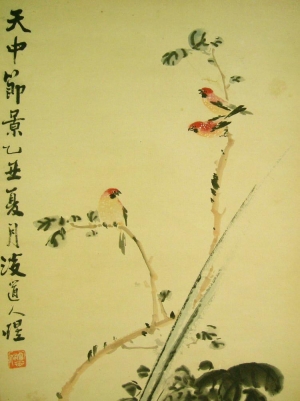 天中節景乙丑夏月海道人惺